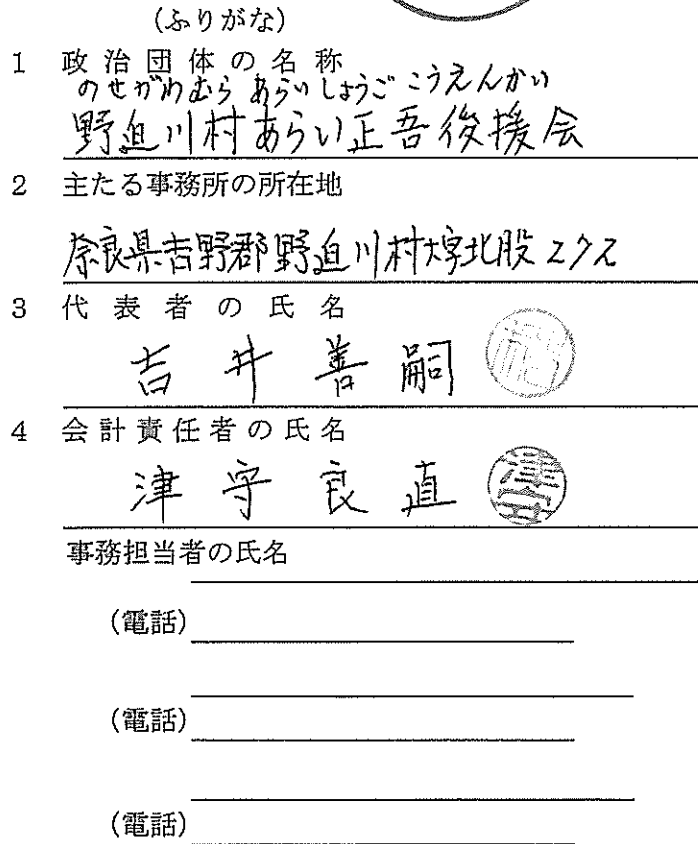 (ふりがな)
1 政治団体の名称
のせがわむら あらいしょうご こうえんかい
野迫川村あらい正吾後援会
2 主たる事務所の所在地
奈良県吉野郡野迫川村大字北股272
3 代表者の氏名
吉井善嗣
4 会計責任者の氏名
津守良直 津守
事務担当者の氏名
(電話)
(電話)
(電話)